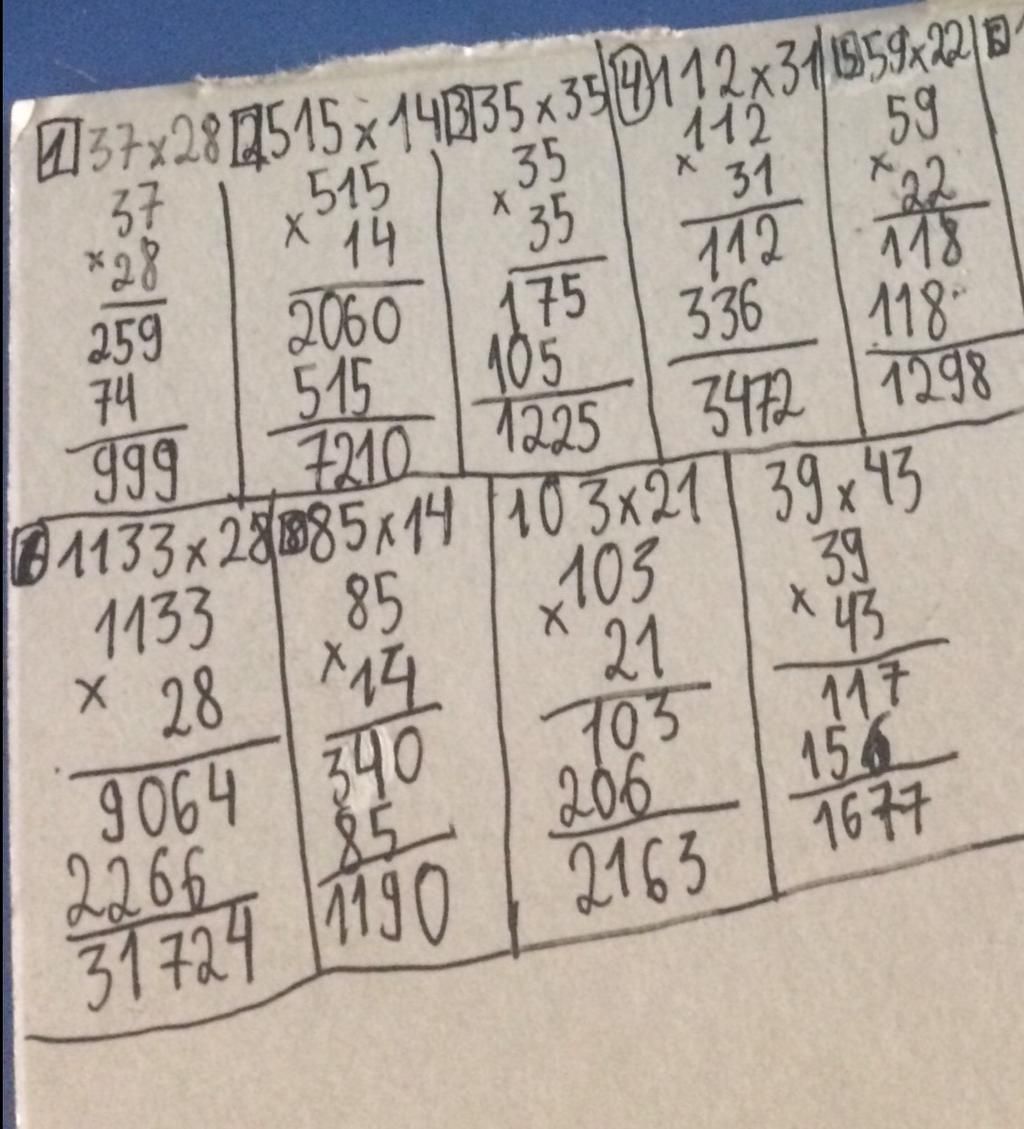 1 37x28
37
x 28
259
74
999
2 515x14
515
x 14
2060
515
7210
3 35x35
35
x 35
175
105
1225
4 112x31
112
x 31
112
336
3472
5 59x22
59
x 22
118
118
1298
6 1133x28
1133
x 28
9064
2266
31724
8 85x14
85
x 14
340
85
1190
103x21
103
x 21
103
206
2163
39x43
39
x 43
117
156
1677